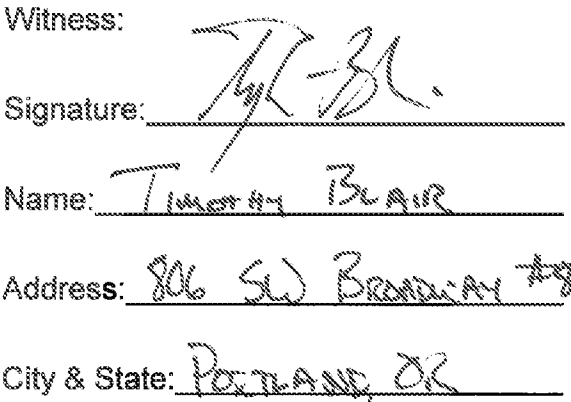 Witness:
Signature:
Name: TIMOTHY BLAIR
Address: 806 SW BROADWAY #8
City & State: PORTLAND, OR